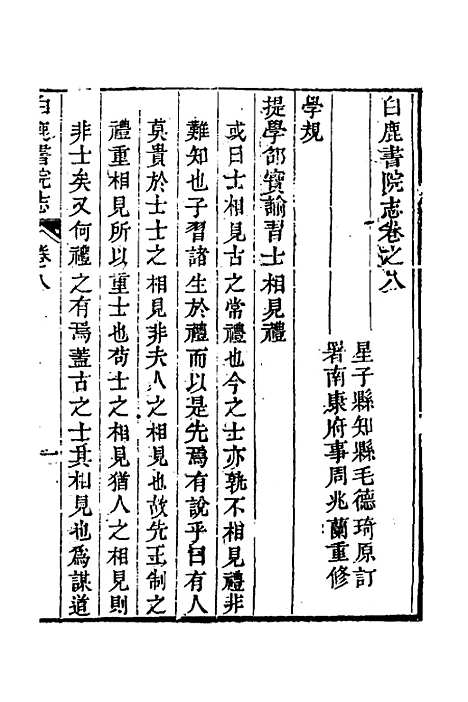 白鹿書院志卷之八
星子縣知縣毛德琦原訂
署南康府事周兆蘭重修
學規
提學邵寶諭習士相見禮
或曰士相見古之常禮也今之士亦孰不相見禮非
難知也子習諸生於禮而以是先焉有說乎曰有人
莫貴於士士之相見非夫人之相見也故先王制之
禮重相見所以重士也苟士之相見猶人之相見則
非士矣又何禮之有焉蓋古之士其相見也為謀道
白鹿書院志
卷八
一